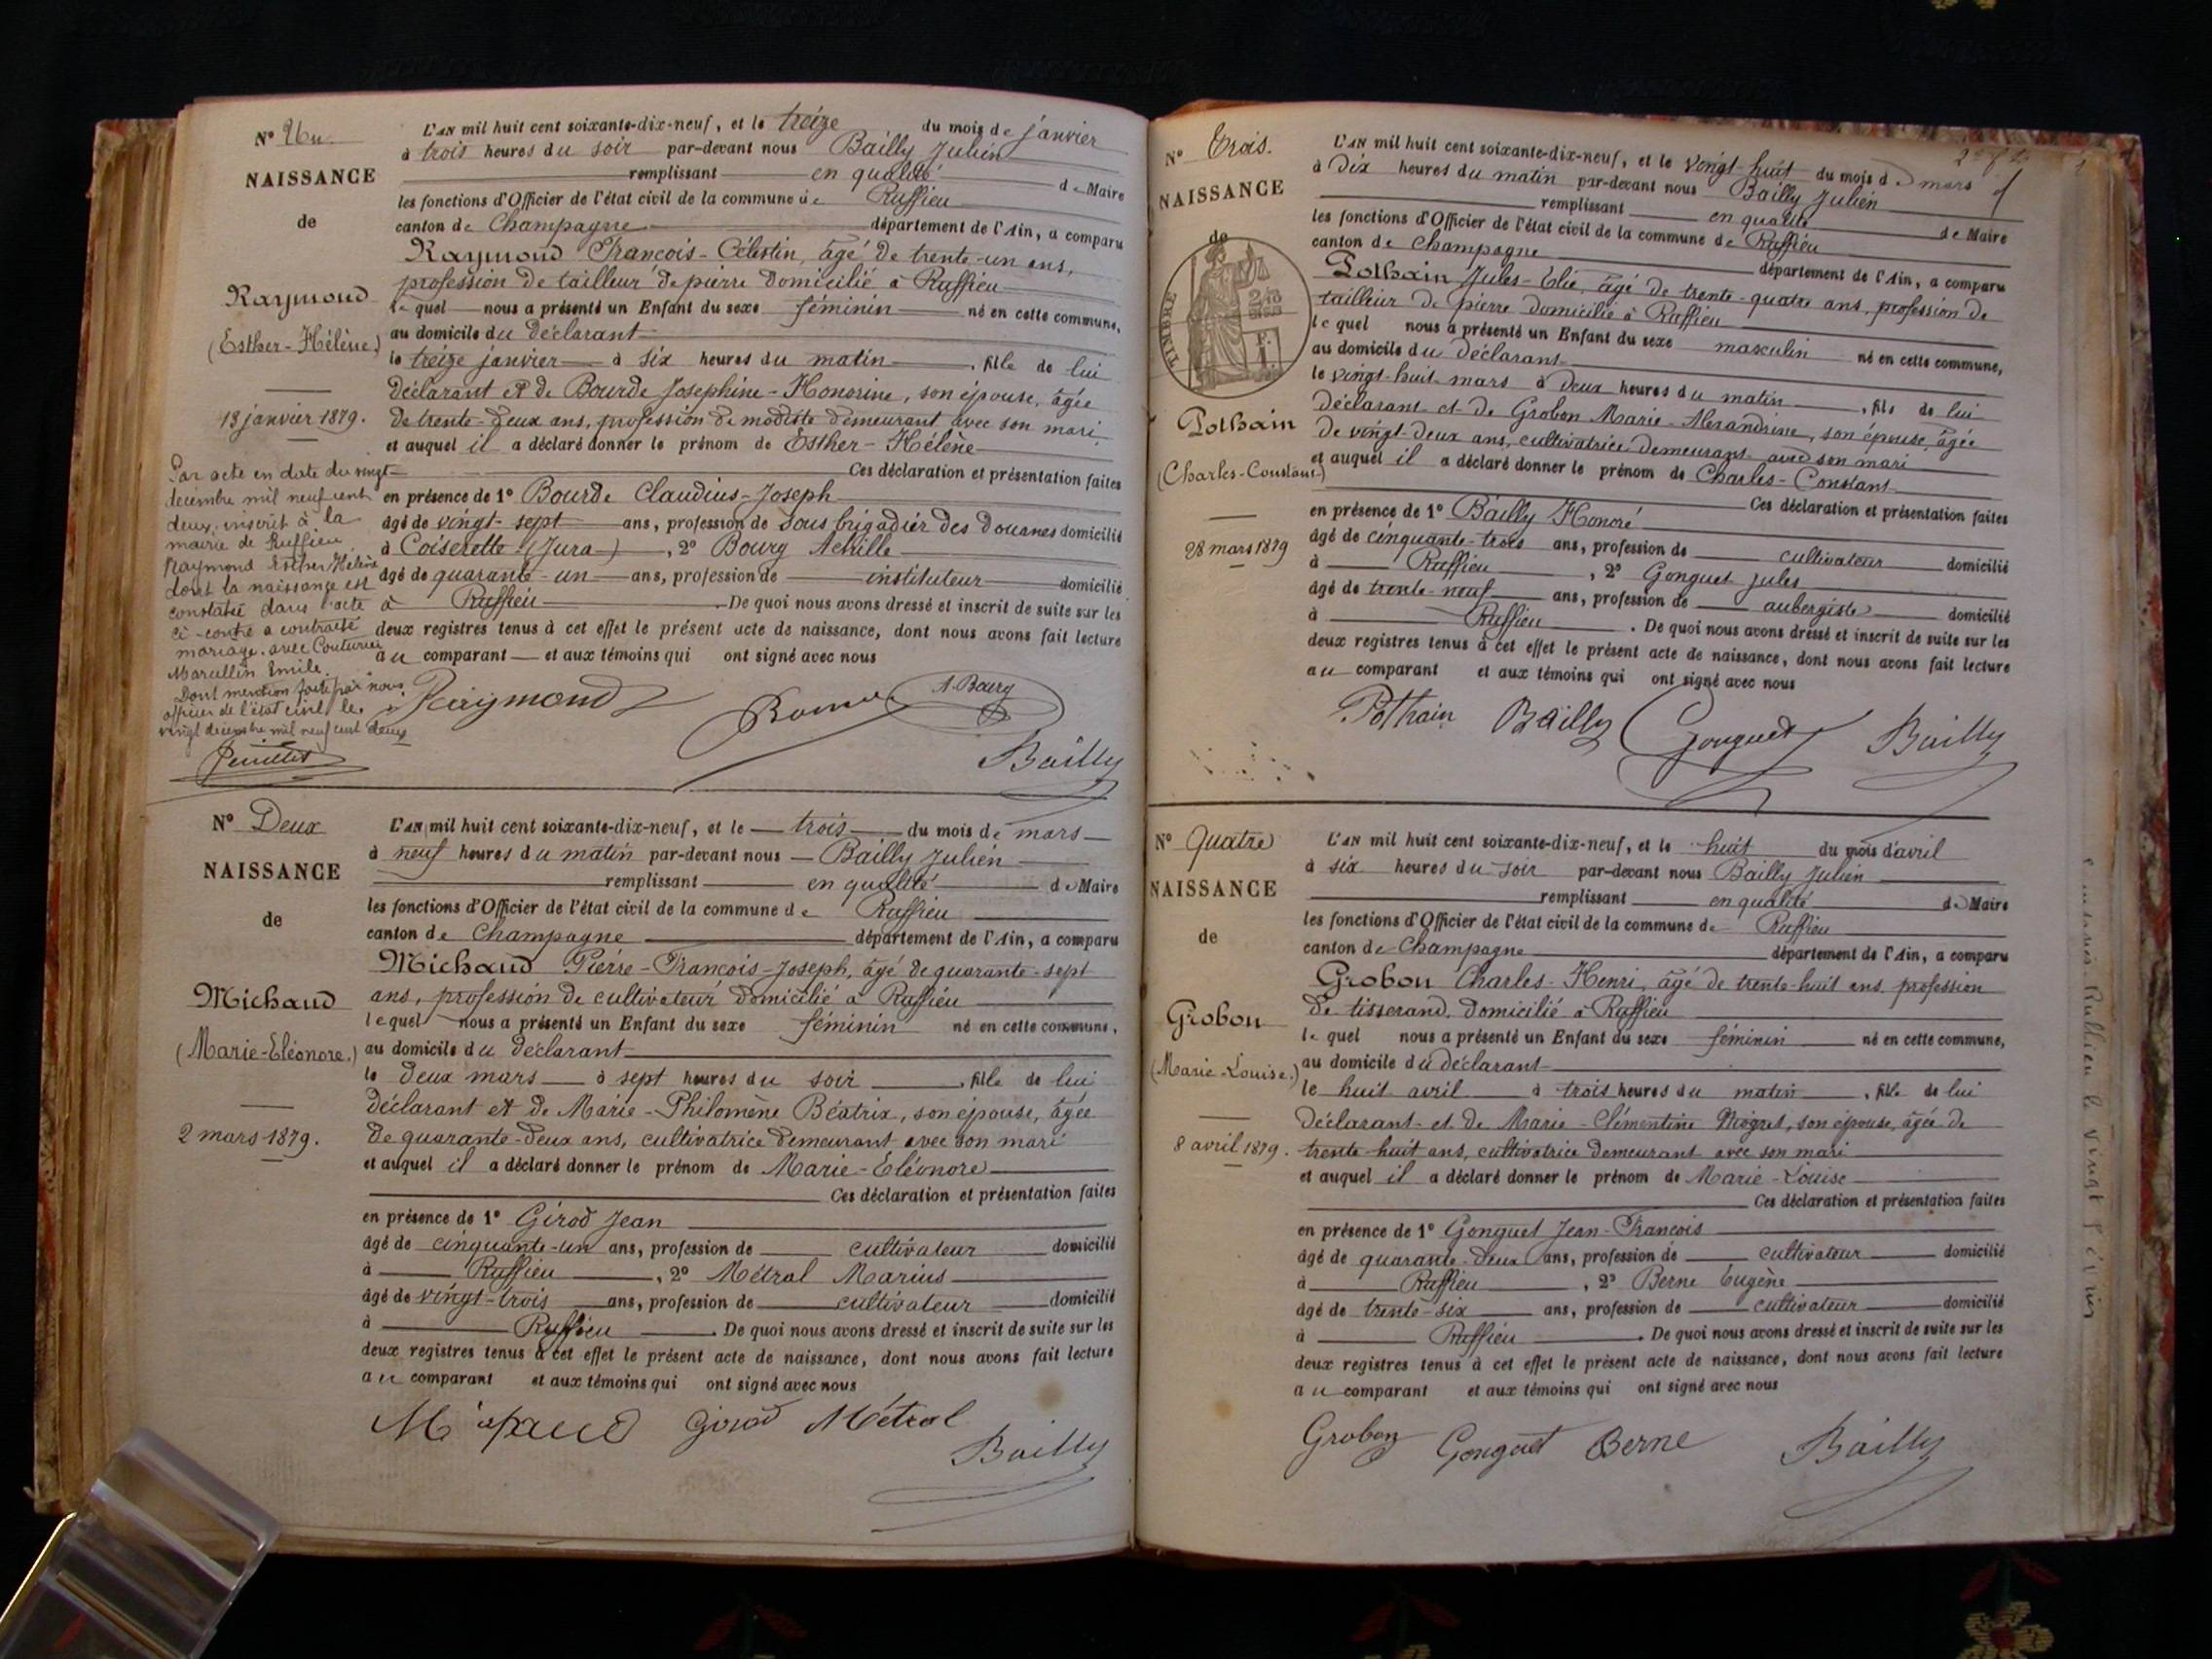 N° Un.
NAISSANCE
de
Raymond
(Esther-Hélène)
13 janvier 1879.
Par acte en date du vingt
décembre mil neuf cent
deux inscrit à la
mairie de Ruffieu
Raymond Esther Hélène
dont la naissance est
constatée dans l'acte
ci-contre a contracté
mariage avec Couturier
Marcellin Emile.
Dont mention faite par nous
officier de l'état civil le
vingt décembre mil neuf cent deux
L'AN mil huit cent soixante-dix-neuf, et le treize du mois de janvier
à trois heures du soir par-devant nous Bailly Julien
remplissant en qualité de Maire
les fonctions d'Officier de l'état civil de la commune de Ruffieu
canton de Champagne département de l'Ain, a comparu
Raymond François-Célestin, âgé de trente-un ans,
profession de tailleur de pierre domicilié à Ruffieu
lequel nous a présenté un Enfant du sexe féminin né en cette commune,
au domicile du déclarant
le treize janvier à six heures du matin, fille de lui
déclarant et de Bourde Josephine-Honorine, son épouse, âgée
de trente-deux ans, profession de modiste demeurant avec son mari
et auquel il a déclaré donner le prénom de Esther-Hélène
Ces déclaration et présentation faites
en présence de 1° Bourde Claudius-Joseph
âgé de vingt-sept ans, profession de sous brigadier des Douanes domicilié
à Coiserette (Jura), 2° Bourg Achille
âgé de quarante-un ans, profession de instituteur domicilié
à Ruffieu. De quoi nous avons dressé et inscrit de suite sur les
deux registres tenus à cet effet le présent acte de naissance, dont nous avons fait lecture
au comparant et aux témoins qui ont signé avec nous
Raymond A. Bourg
Bailly
N° Deux
NAISSANCE
de
Michaud
(Marie-Eléonore.)
2 mars 1879.
L'AN mil huit cent soixante-dix-neuf, et le trois du mois de mars
à neuf heures du matin par-devant nous Bailly Julien
remplissant en qualité de Maire
les fonctions d'Officier de l'état civil de la commune de Ruffieu
canton de Champagne département de l'Ain, a comparu
Michaud Pierre-François-Joseph, âgé de quarante-sept
ans, profession de cultivateur domicilié à Ruffieu
lequel nous a présenté un Enfant du sexe féminin né en cette commune,
au domicile du déclarant
le deux mars à sept heures du soir, fille de lui
déclarant et de Marie-Philomène Béatrix, son épouse, âgée
de quarante-deux ans, cultivatrice demeurant avec son mari
et auquel il a déclaré donner le prénom de Marie-Eléonore
Ces déclaration et présentation faites
en présence de 1° Girod Jean
âgé de cinquante-un ans, profession de cultivateur domicilié
à Ruffieu, 2° Métral Marius
âgé de vingt-trois ans, profession de cultivateur domicilié
à Ruffieu. De quoi nous avons dressé et inscrit de suite sur les
deux registres tenus à cet effet le présent acte de naissance, dont nous avons fait lecture
au comparant et aux témoins qui ont signé avec nous
Girod Métral
Bailly
N° Trois.
NAISSANCE
de
TIMBRE
Pothain
(Charles-Constant)
28 mars 1879
L'AN mil huit cent soixante-dix-neuf, et le vingt-huit du mois de mars
à dix heures du matin par-devant nous Bailly Julien
remplissant en qualité de Maire
les fonctions d'Officier de l'état civil de la commune de Ruffieu
canton de Champagne département de l'Ain, a comparu
Pothain Jules-Elie, âgé de trente-quatre ans, profession de
tailleur de pierre domicilié à Ruffieu
lequel nous a présenté un Enfant du sexe masculin né en cette commune,
au domicile du déclarant
le vingt-huit mars à deux heures du matin, fils de lui
déclarant et de Grobon Marie-Alexandrine, son épouse, âgée
de vingt-deux ans, cultivatrice demeurant avec son mari
et auquel il a déclaré donner le prénom de Charles-Constant
Ces déclaration et présentation faites
en présence de 1° Bailly Honoré
âgé de cinquante-trois ans, profession de cultivateur domicilié
à Ruffieu, 2° Gonguet Jules
âgé de trente-neuf ans, profession de aubergiste domicilié
à Ruffieu. De quoi nous avons dressé et inscrit de suite sur les
deux registres tenus à cet effet le présent acte de naissance, dont nous avons fait lecture
au comparant et aux témoins qui ont signé avec nous
Pothain Bailly Gonguet Bailly
N° Quatre
NAISSANCE
de
Grobon
(Marie-Louise.)
8 avril 1879.
L'AN mil huit cent soixante-dix-neuf, et le huit du mois d'avril
à six heures du soir par-devant nous Bailly Julien
remplissant en qualité de Maire
les fonctions d'Officier de l'état civil de la commune de Ruffieu
canton de Champagne département de l'Ain, a comparu
Grobon Charles-Henri, âgé de trente-huit ans, profession
de tisserand, domicilié à Ruffieu
lequel nous a présenté un Enfant du sexe féminin né en cette commune,
au domicile du déclarant
le huit avril à trois heures du matin, fille de lui
déclarant et de Marie-Clémentine Niogret, son épouse, âgée de
trente-huit ans, cultivatrice demeurant avec son mari
et auquel il a déclaré donner le prénom de Marie-Louise
Ces déclaration et présentation faites
en présence de 1° Gonguet Jean-François
âgé de quarante-deux ans, profession de cultivateur domicilié
à Ruffieu, 2° Berne Eugène
âgé de trente-six ans, profession de cultivateur domicilié
à Ruffieu. De quoi nous avons dressé et inscrit de suite sur les
deux registres tenus à cet effet le présent acte de naissance, dont nous avons fait lecture
au comparant et aux témoins qui ont signé avec nous
Grobon Gonguet Berne Bailly